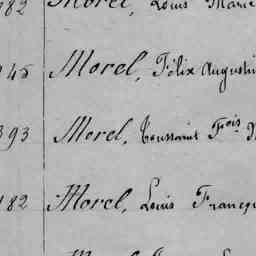 82 Morel, Louis Marie
45 Morel, Félix Augusti
393 Morel, Toussaint Fois
182 Morel, Louis Franç